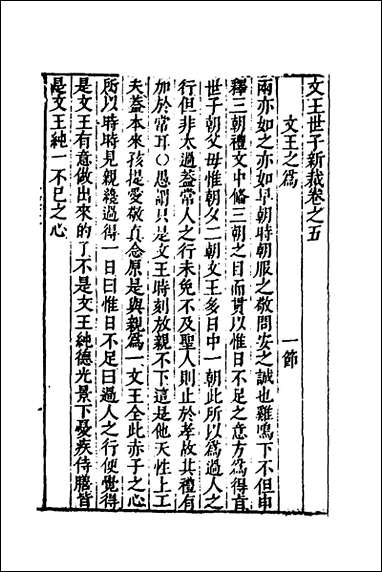 文王世子新裁卷之五
文王之爲　一節
兩亦如之亦如早朝時朝服之敬問安之誠也雞鳴下不但申
釋三朝禮文中脩三朝之目而貫以惟日不足之意方爲得旨
世子朝父母惟朝夕二朝文王多日中一朝此所以爲過人之
行但非太過蓋常人之行未免不及聖人則止於孝故其禮有
加於常耳○愚謂只是文王時刻放親不下這是他天性上工
夫蓋本來孩提愛敬真念原是與親爲一文王全此赤子之心
所以時時見親纔過得一日曰惟日不足曰過人之行便覺得
是文王有意做出來的了不是文王純德光景下憂疾侍膳皆
是文王純一不已之心